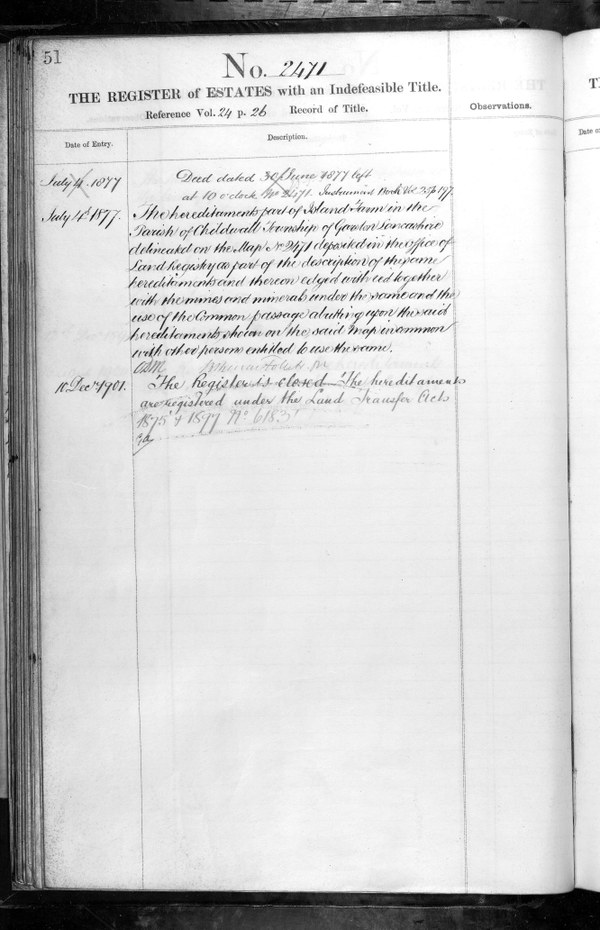 51
No. 2471
THE REGISTER of ESTATES with an Indefeasible Title.
Reference Vol. 24 p. 26 Record of Title.
Observations.
Date of Entry.
Description.
July 4. 1877
Deed dated 30 June 1877 left
at 10 o'clock No 2471. Instrument Book Vol 25 p 197.
July 4th 1877.
The hereditaments part of Island Farm in the
Parish of Childwall Township of Garston Lancashire
delineated on the Map No 2471 deposited in the office of
Land Registry as part of the description of the same
hereditaments and thereon edged with red together
with the mines and minerals under the same and the
use of the Common passage abutting upon the said
hereditaments shown on the said Map in common
with other persons entitled to use the same.
10 Dec. 1901.
The Register is closed The hereditaments
are registered under the Land Transfer Acts
1875 & 1897 No 6183
T
Date o